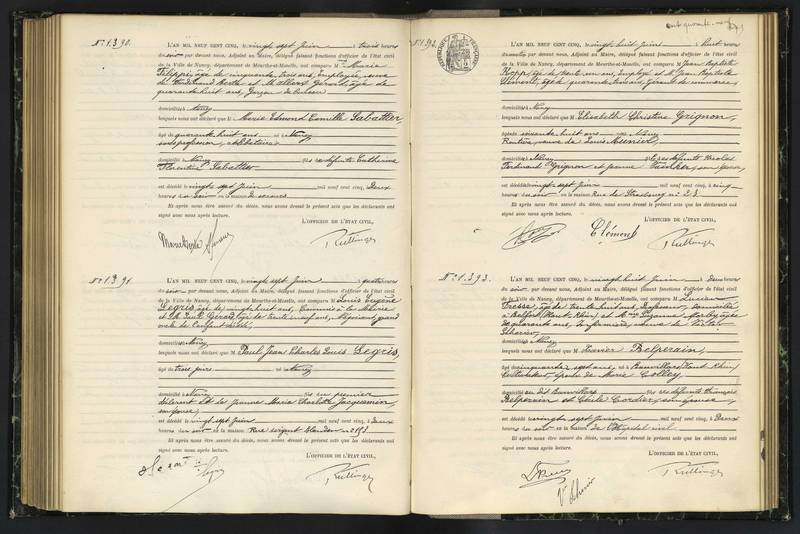 N° 1.390.
L'AN MIL NEUF CENT CINQ, le vingt sept Juin à trois heures
du soir par devant nous, Adjoint au Maire, délégué faisant fonctions d'officier de l'état civil
de la Ville de Nancy, département de Meurthe-et-Moselle, ont comparu M Marie
âgée de cinquante trois ans, employée, veuve
de Ferdinand et M Gérard, âgé de
quarante huit ans, Garçon de bureau
domiciliés à Nancy
lesquels nous ont déclaré que M Marie Edmond Camille Sabattier
âgé de quarante huit ans né à Nancy
sans profession, célibataire
domicilié à Nancy fils de défunte Catherine
Florentine Sabattier
est décédé le vingt sept Juin mil neuf cent cinq, à Deux
heures du soir en la maison de secours
Et après nous être assuré du décès, nous avons dressé le présent acte que les déclarants ont
signé avec nous après lecture.
L'OFFICIER DE L'ÉTAT CIVIL,
N° 1.391.
L'AN MIL NEUF CENT CINQ, le vingt sept Juin à quatre heures
du soir par devant nous, Adjoint au Maire, délégué faisant fonctions d'officier de l'état civil
de la Ville de Nancy, département de Meurthe-et-Moselle, ont comparu M Louis Eugène
Legris âgé de vingt huit ans, Commis à la Mairie
et âgé de trente neuf ans, Négociant, grand
oncle de l'enfant
domiciliés à Nancy
lesquels nous ont déclaré que M Paul Jean Charles Louis Legris,
âgé de trois jours né à Nancy
domicilié à Nancy fils du premier
déclarant et de Jeanne Marie Charlotte Jacquemin
son épouse
est décédé le vingt sept Juin mil neuf cent cinq, à Deux
heures du soir en la maison Rue sergent Blandan n° 193
Et après nous être assuré du décès, nous avons dressé le présent acte que les déclarants ont
signé avec nous après lecture.
L'OFFICIER DE L'ÉTAT CIVIL,
N° 1.392.
L'AN MIL NEUF CENT CINQ, le vingt huit Juin à huit heures
du matin par devant nous, Adjoint au Maire, délégué faisant fonctions d'officier de l'état civil
de la Ville de Nancy, département de Meurthe-et-Moselle, ont comparu M Jean Baptiste
Kopp, âgé de trente un ans, Employé et M Jean Baptiste
Clément âgé de quarante trois ans, Gérant de commerce
domiciliés à Nancy
lesquels nous ont déclaré que M Elisabeth Christine Grignon,
âgée de soixante huit ans née à Nancy
Rentière, veuve de Louis Meunier,
domiciliée à Nancy fille des défunts Nicolas
Ferdinand Grignon et Jeanne son épouse
est décédée le vingt sept Juin mil neuf cent cinq, à cinq
heures du soir en la maison Rue de Strasbourg n° 23
Et après nous être assuré du décès, nous avons dressé le présent acte que les déclarants ont
signé avec nous après lecture.
L'OFFICIER DE L'ÉTAT CIVIL,
Clément
N° 1.393.
L'AN MIL NEUF CENT CINQ, le vingt huit Juin à Deux heures
du soir par devant nous, Adjoint au Maire, délégué faisant fonctions d'officier de l'état civil
de la Ville de Nancy, département de Meurthe-et-Moselle, ont comparu M Lucien
âgé de trente huit ans, domicilié
à Belfort (Haut Rhin) et M Suzanne âgée
de quarante ans, Infirmière, veuve de Victor
domiciliés à Nancy
lesquels nous ont déclaré que M Xavier Belperain,
âgé de cinquante sept ans né à Banvillars (Haut Rhin)
Cultivateur, époux de Marie Colley
domicilié au dit Banvillars fils des défunts François
Belperain et Cécile Cordier, son épouse
est décédé le vingt sept Juin mil neuf cent cinq, à Deux
heures du soir en la maison de l'Hôpital civil
Et après nous être assuré du décès, nous avons dressé le présent acte que les déclarants ont
signé avec nous après lecture.
L'OFFICIER DE L'ÉTAT CIVIL,